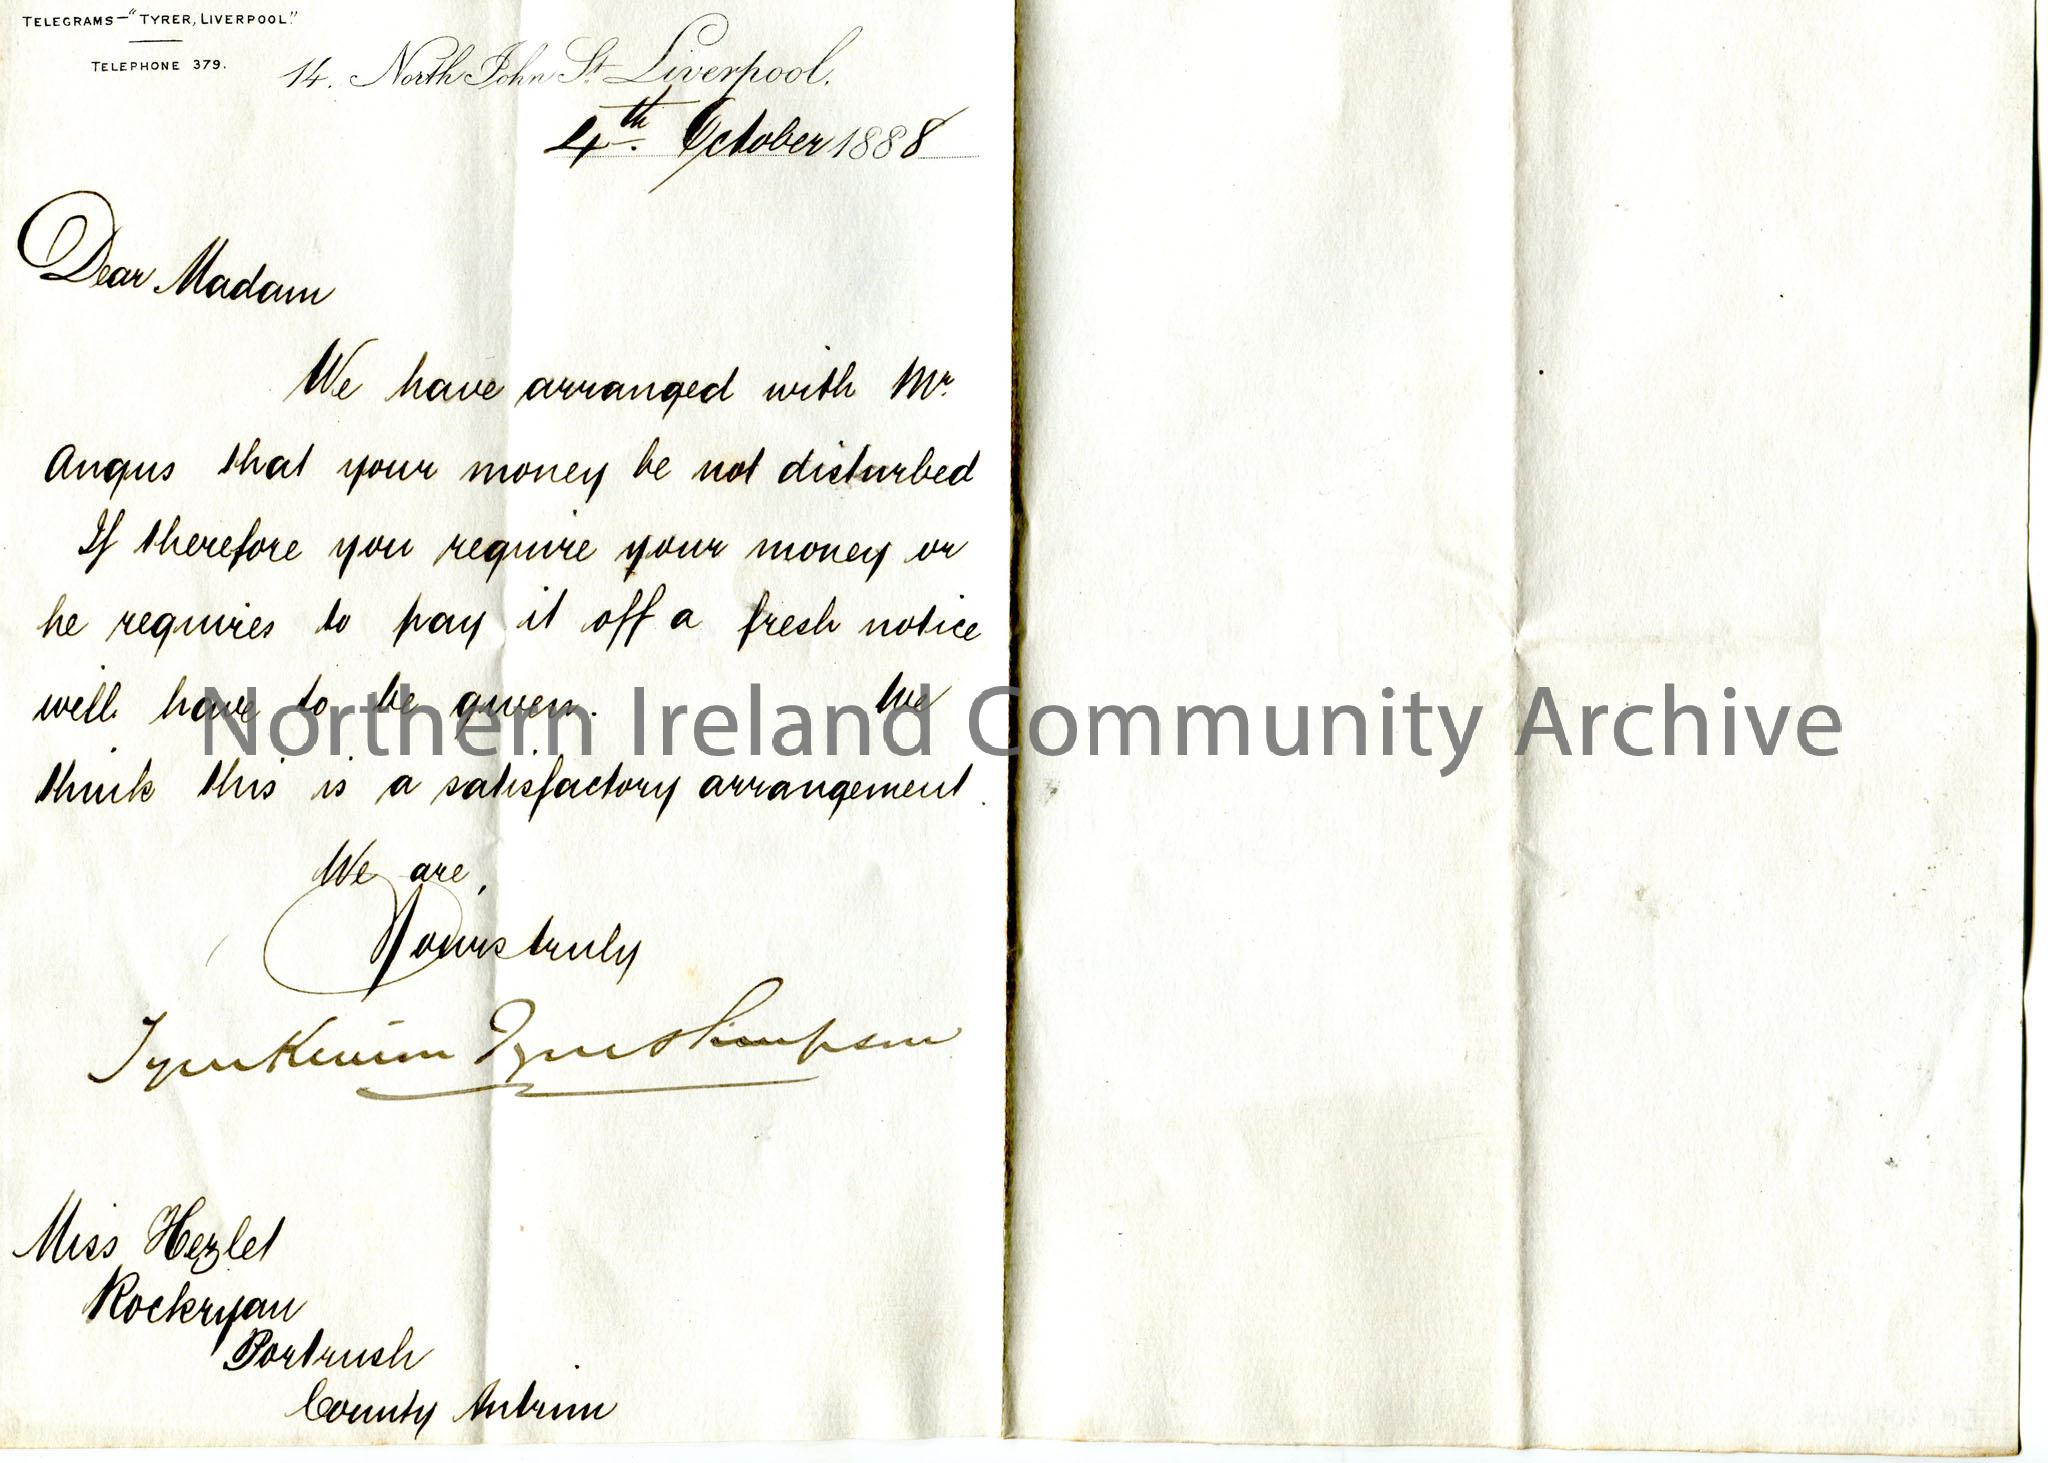 TELEGRAMS–"TYRER, LIVERPOOL."
TELEPHONE 379.
14. North John St. Liverpool.
4th. October 1888
Dear Madam
We have arranged with Mr.
Angus that your money be not disturbed
If therefore you require your money or
he requires to pay it off a fresh notice
will have to be given. We
think this is a satisfactory arrangement.
We are,
Yours truly
Simpson
Miss Hezlet
Rockryan
Portrush
County Antrim
Northern Ireland Community Archive